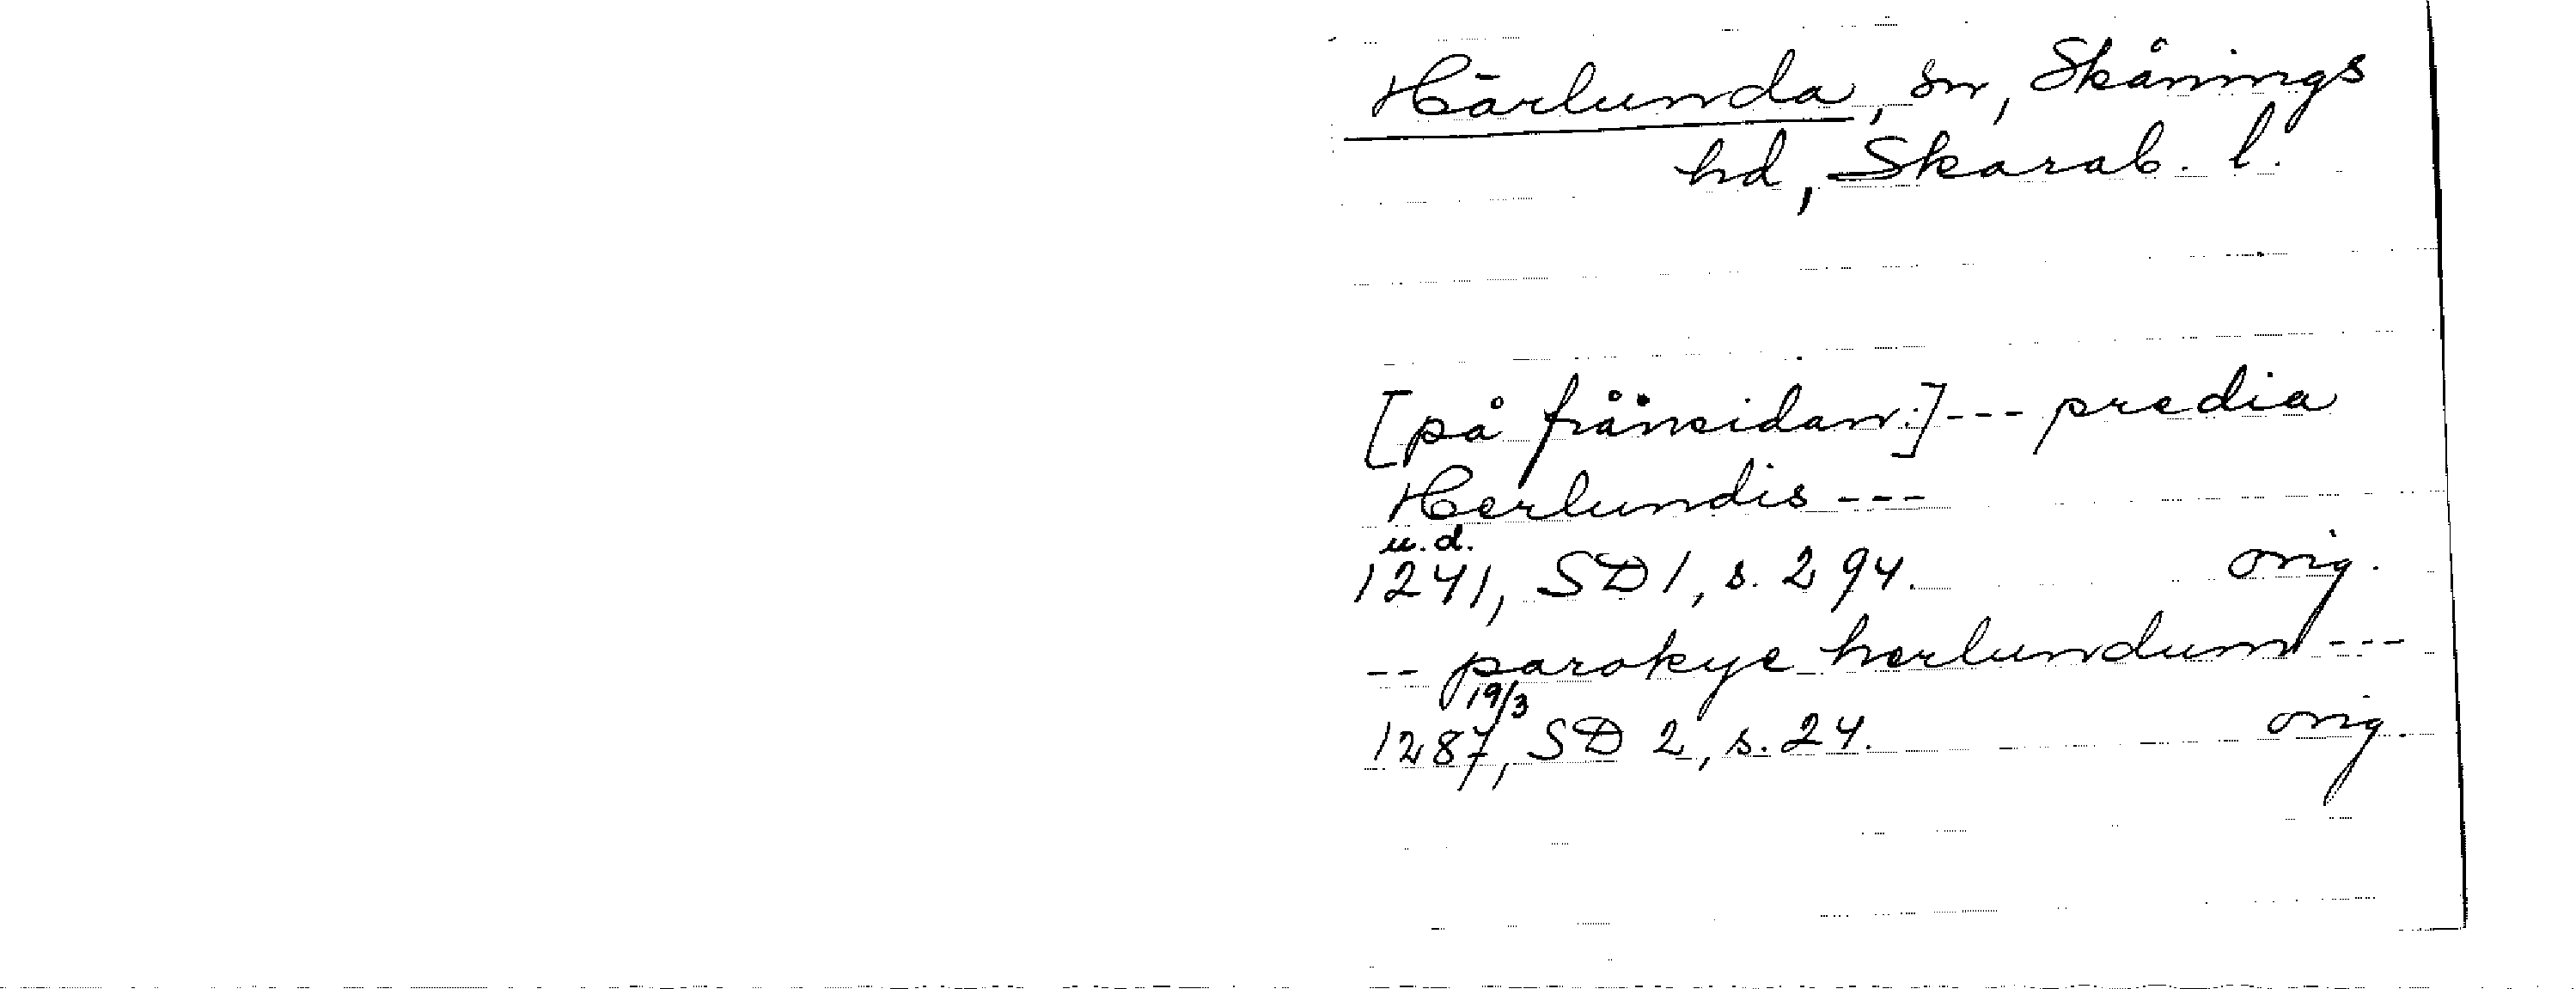 Härlunda, sn, Skånings
hd, Skarab. l.
[på frånsidan:] --- predia
Herlundis ---
u.d.
1241, SD 1, s. 294. orig.
-- parokye herlundum ---
19/3
1287, SD 2, s. 24. orig.